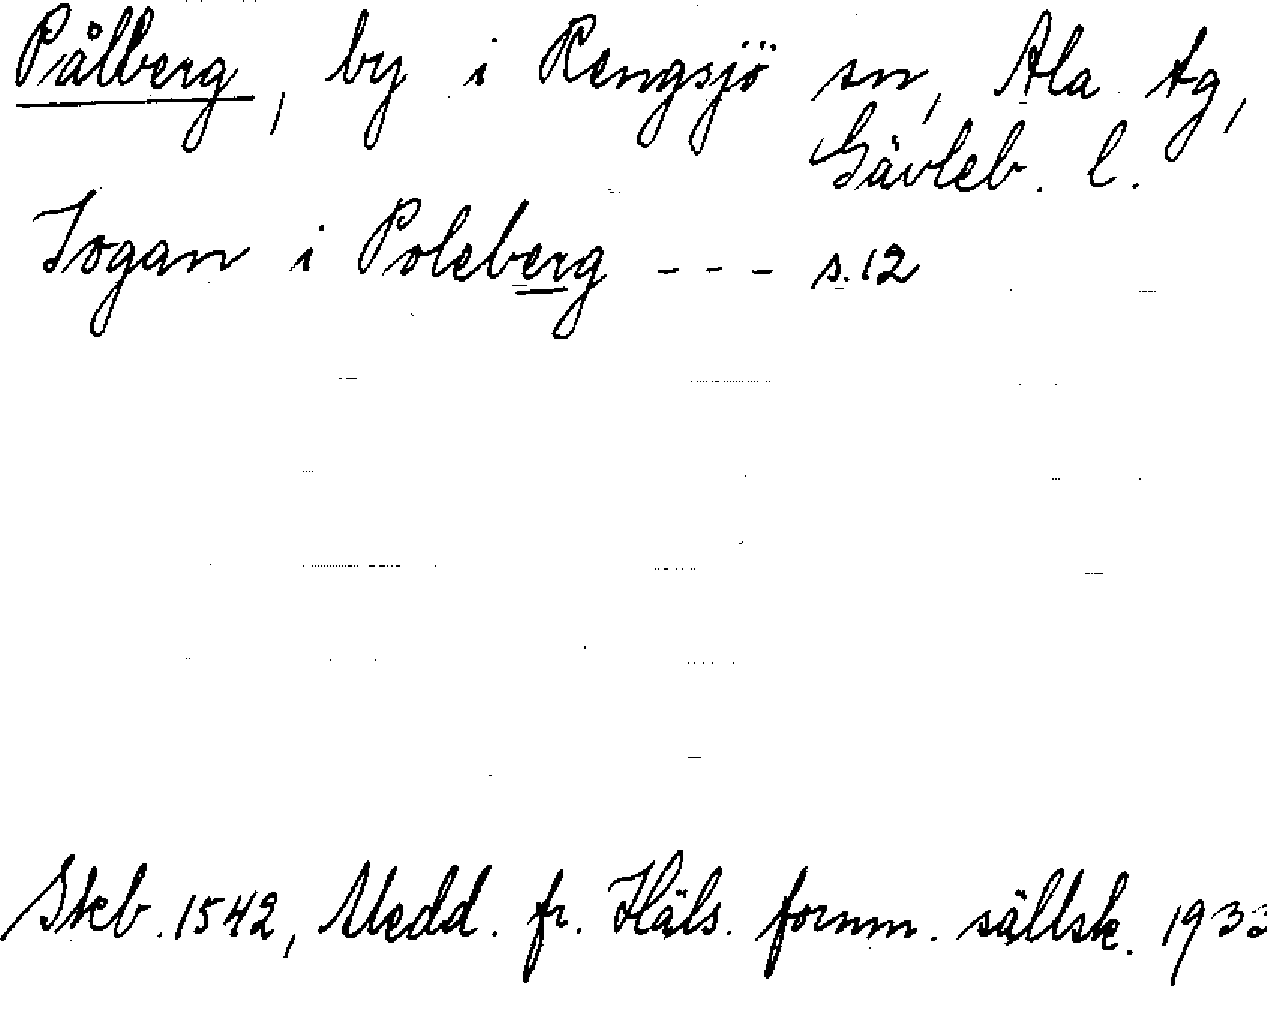 Pålberg, by i Rengsjö sn, Ala tg,
Gävleb. l.
Jogan i Poleberg - - - s. 12
Skb. 1542, Medd. fr. Häls. fornm. sällsk. 1933